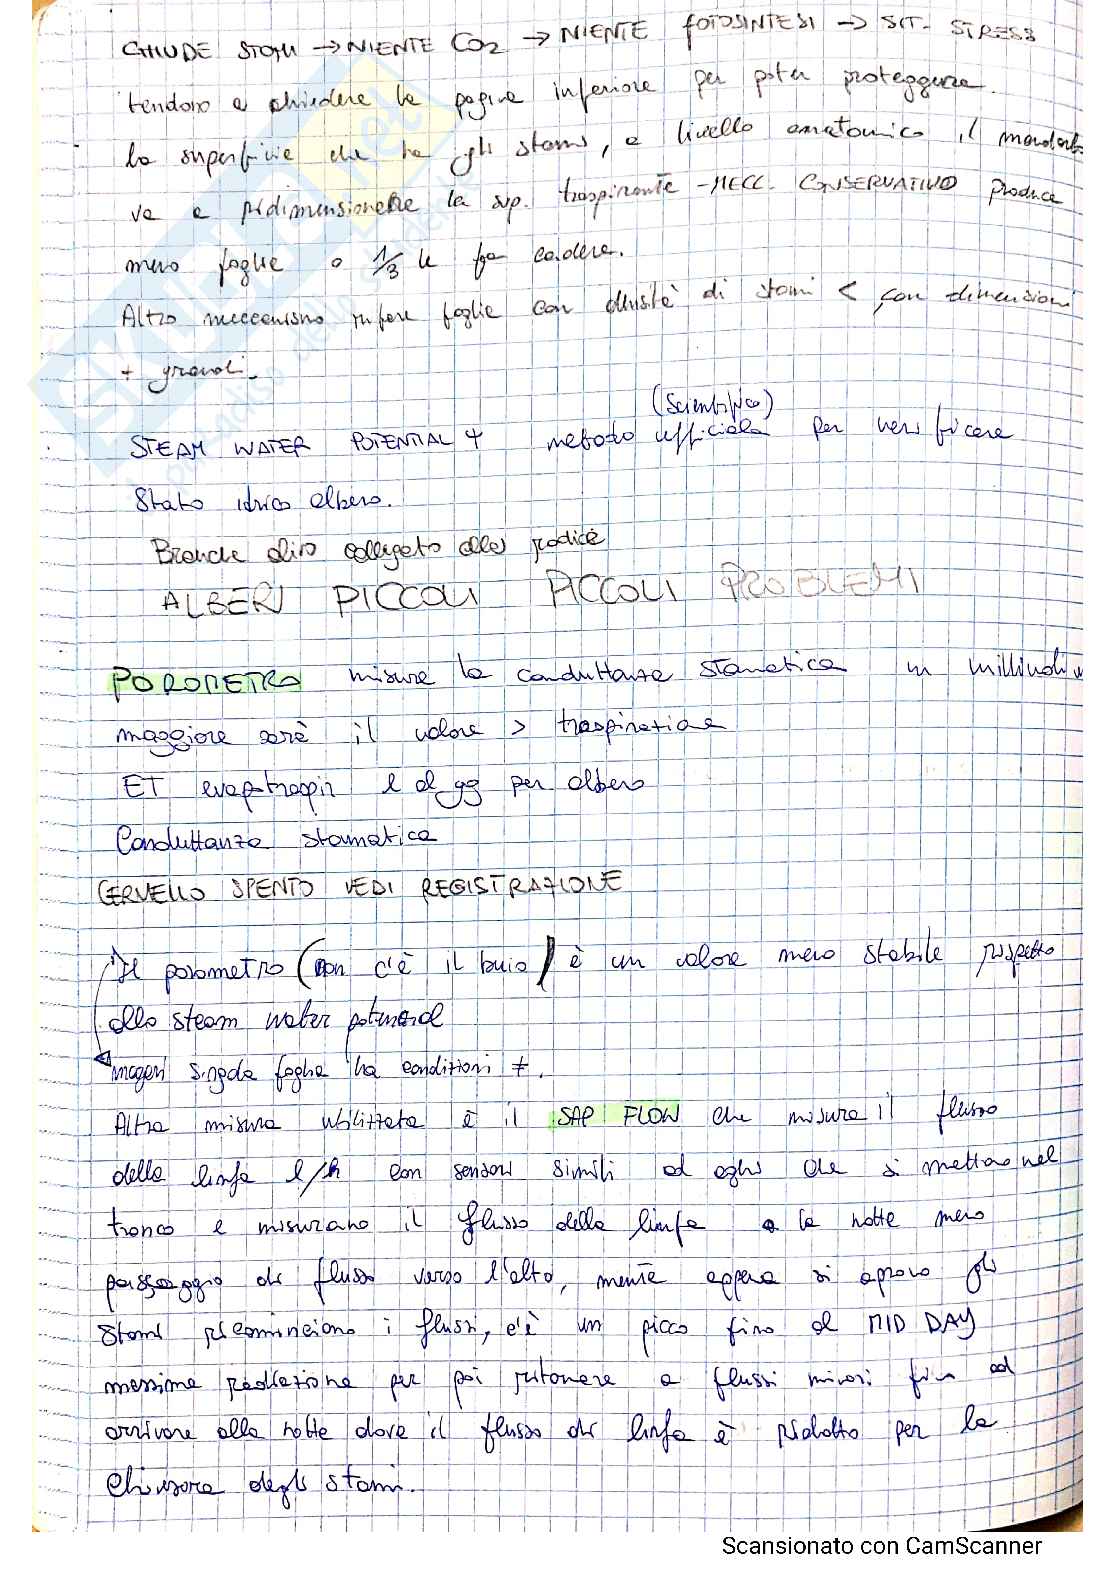 CHIUDE STOMI → NIENTE CO2 → NIENTE FOTOSINTESI → SIT. STRESS
tendono a chiudere la pagina inferiore per poter proteggere
la superficie che ha gli stomi, a livello anatomico il mandorlo
va a ridimensionare la sup. traspirante - MECC. CONSERVATIVO produce
meno foglie o 1/3 le fa cadere.
Altro meccanismo infere foglie con densità di stomi < con dimensioni
+ grandi.
(Scientifico)
STEAM WATER POTENTIAL Ψ metodo ufficiale per verificare
Stato idrico albero.
Branche olivo collegato alle radice
ALBERI PICCOLI PICCOLI PROBLEMI
POROMETRO misura la conduttanza stomatica in millimoli
maggiore sarà il valore > traspirazione
ET evapotraspir l al gg per albero
Conduttanza stomatica
CERVELLO SPENTO VEDI REGISTRAZIONE
Il porometro (non c'è il buio) è un valore meno stabile rispetto
allo steam water potential
magari singola foglia ha condizioni ≠.
Altra misura utilizzata è il SAP FLOW che misura il flusso
della linfa l/h con sensori simili ad aghi che si mettono nel
tronco e misurano il flusso della linfa a la notte meno
passaggio di flusso verso l'alto, mentre appena si aprono gli
stomi ricominciano i flussi, c'è un picco fino al MID DAY
massima radiazione per poi ritornare a flussi minori fino ad
arrivare alla notte dove il flusso di linfa è ridotto per la
chiusura degli stomi.
Scansionato con CamScanner